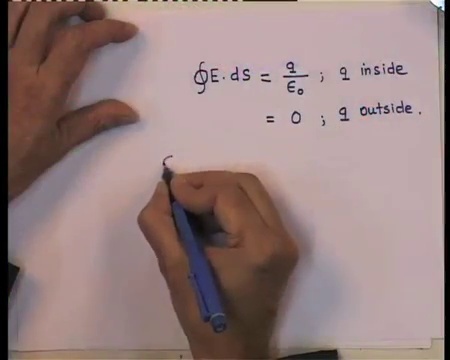 ∮E.ds = q/ε₀ ; q inside
= 0 ; q outside.